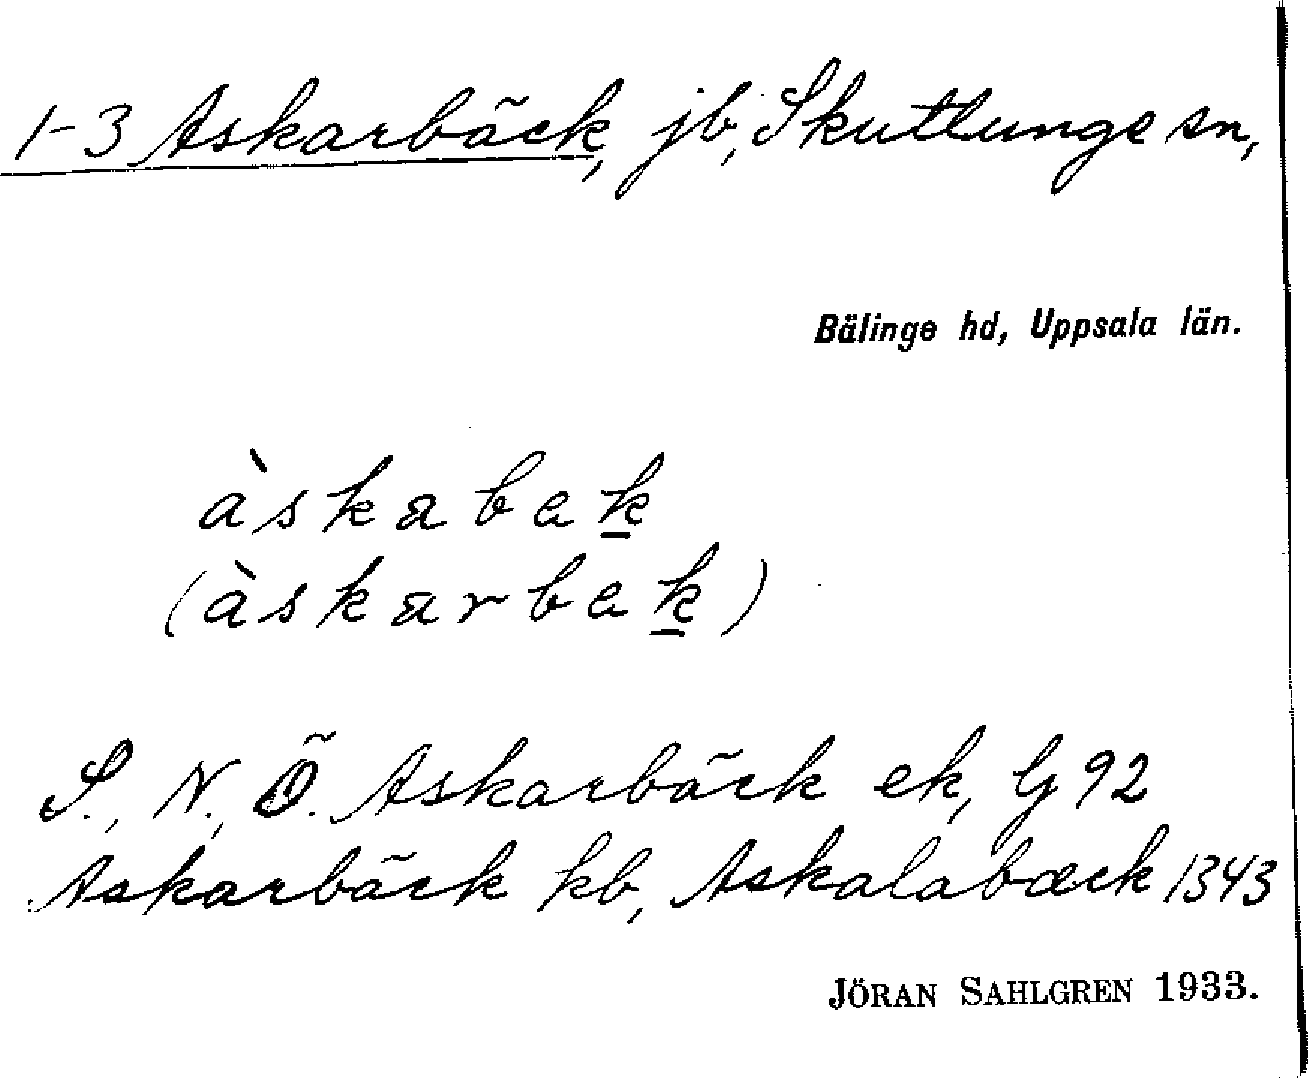 1-3 Askarbäck, jb, Skuttunge sn,
Bälinge hd, Uppsala län.
àskabek
(àskarbek)
S., N., Ö. Askarbäck ek, Gj 92
Askarbäck kb, Askalabæck 1343
JÖRAN SAHLGREN 1933.